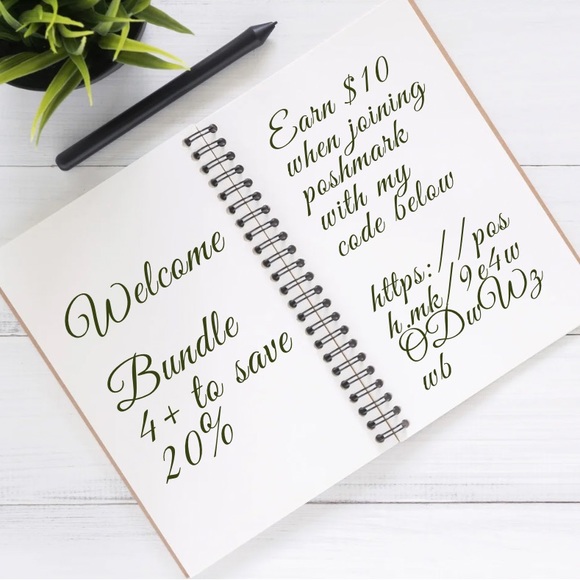 Welcome
Bundle
4+ to save
20%
Earn $10
when joining
poshmark
with my
code below
https://pos
h.mk/9e4w
ODwWz
wb